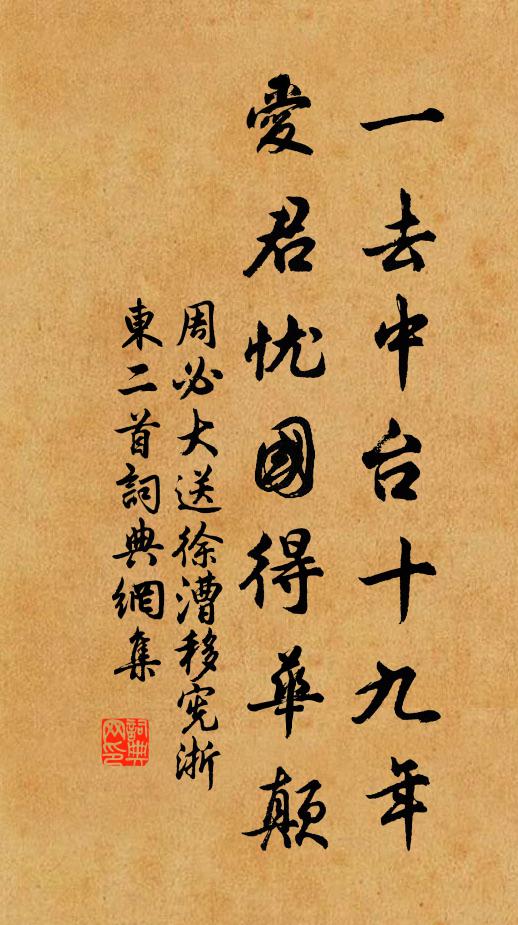 一去中台十九年
愛君忧國得華顛
周必大送徐漕移宪浙
東二首詞典網集
詞典
网印